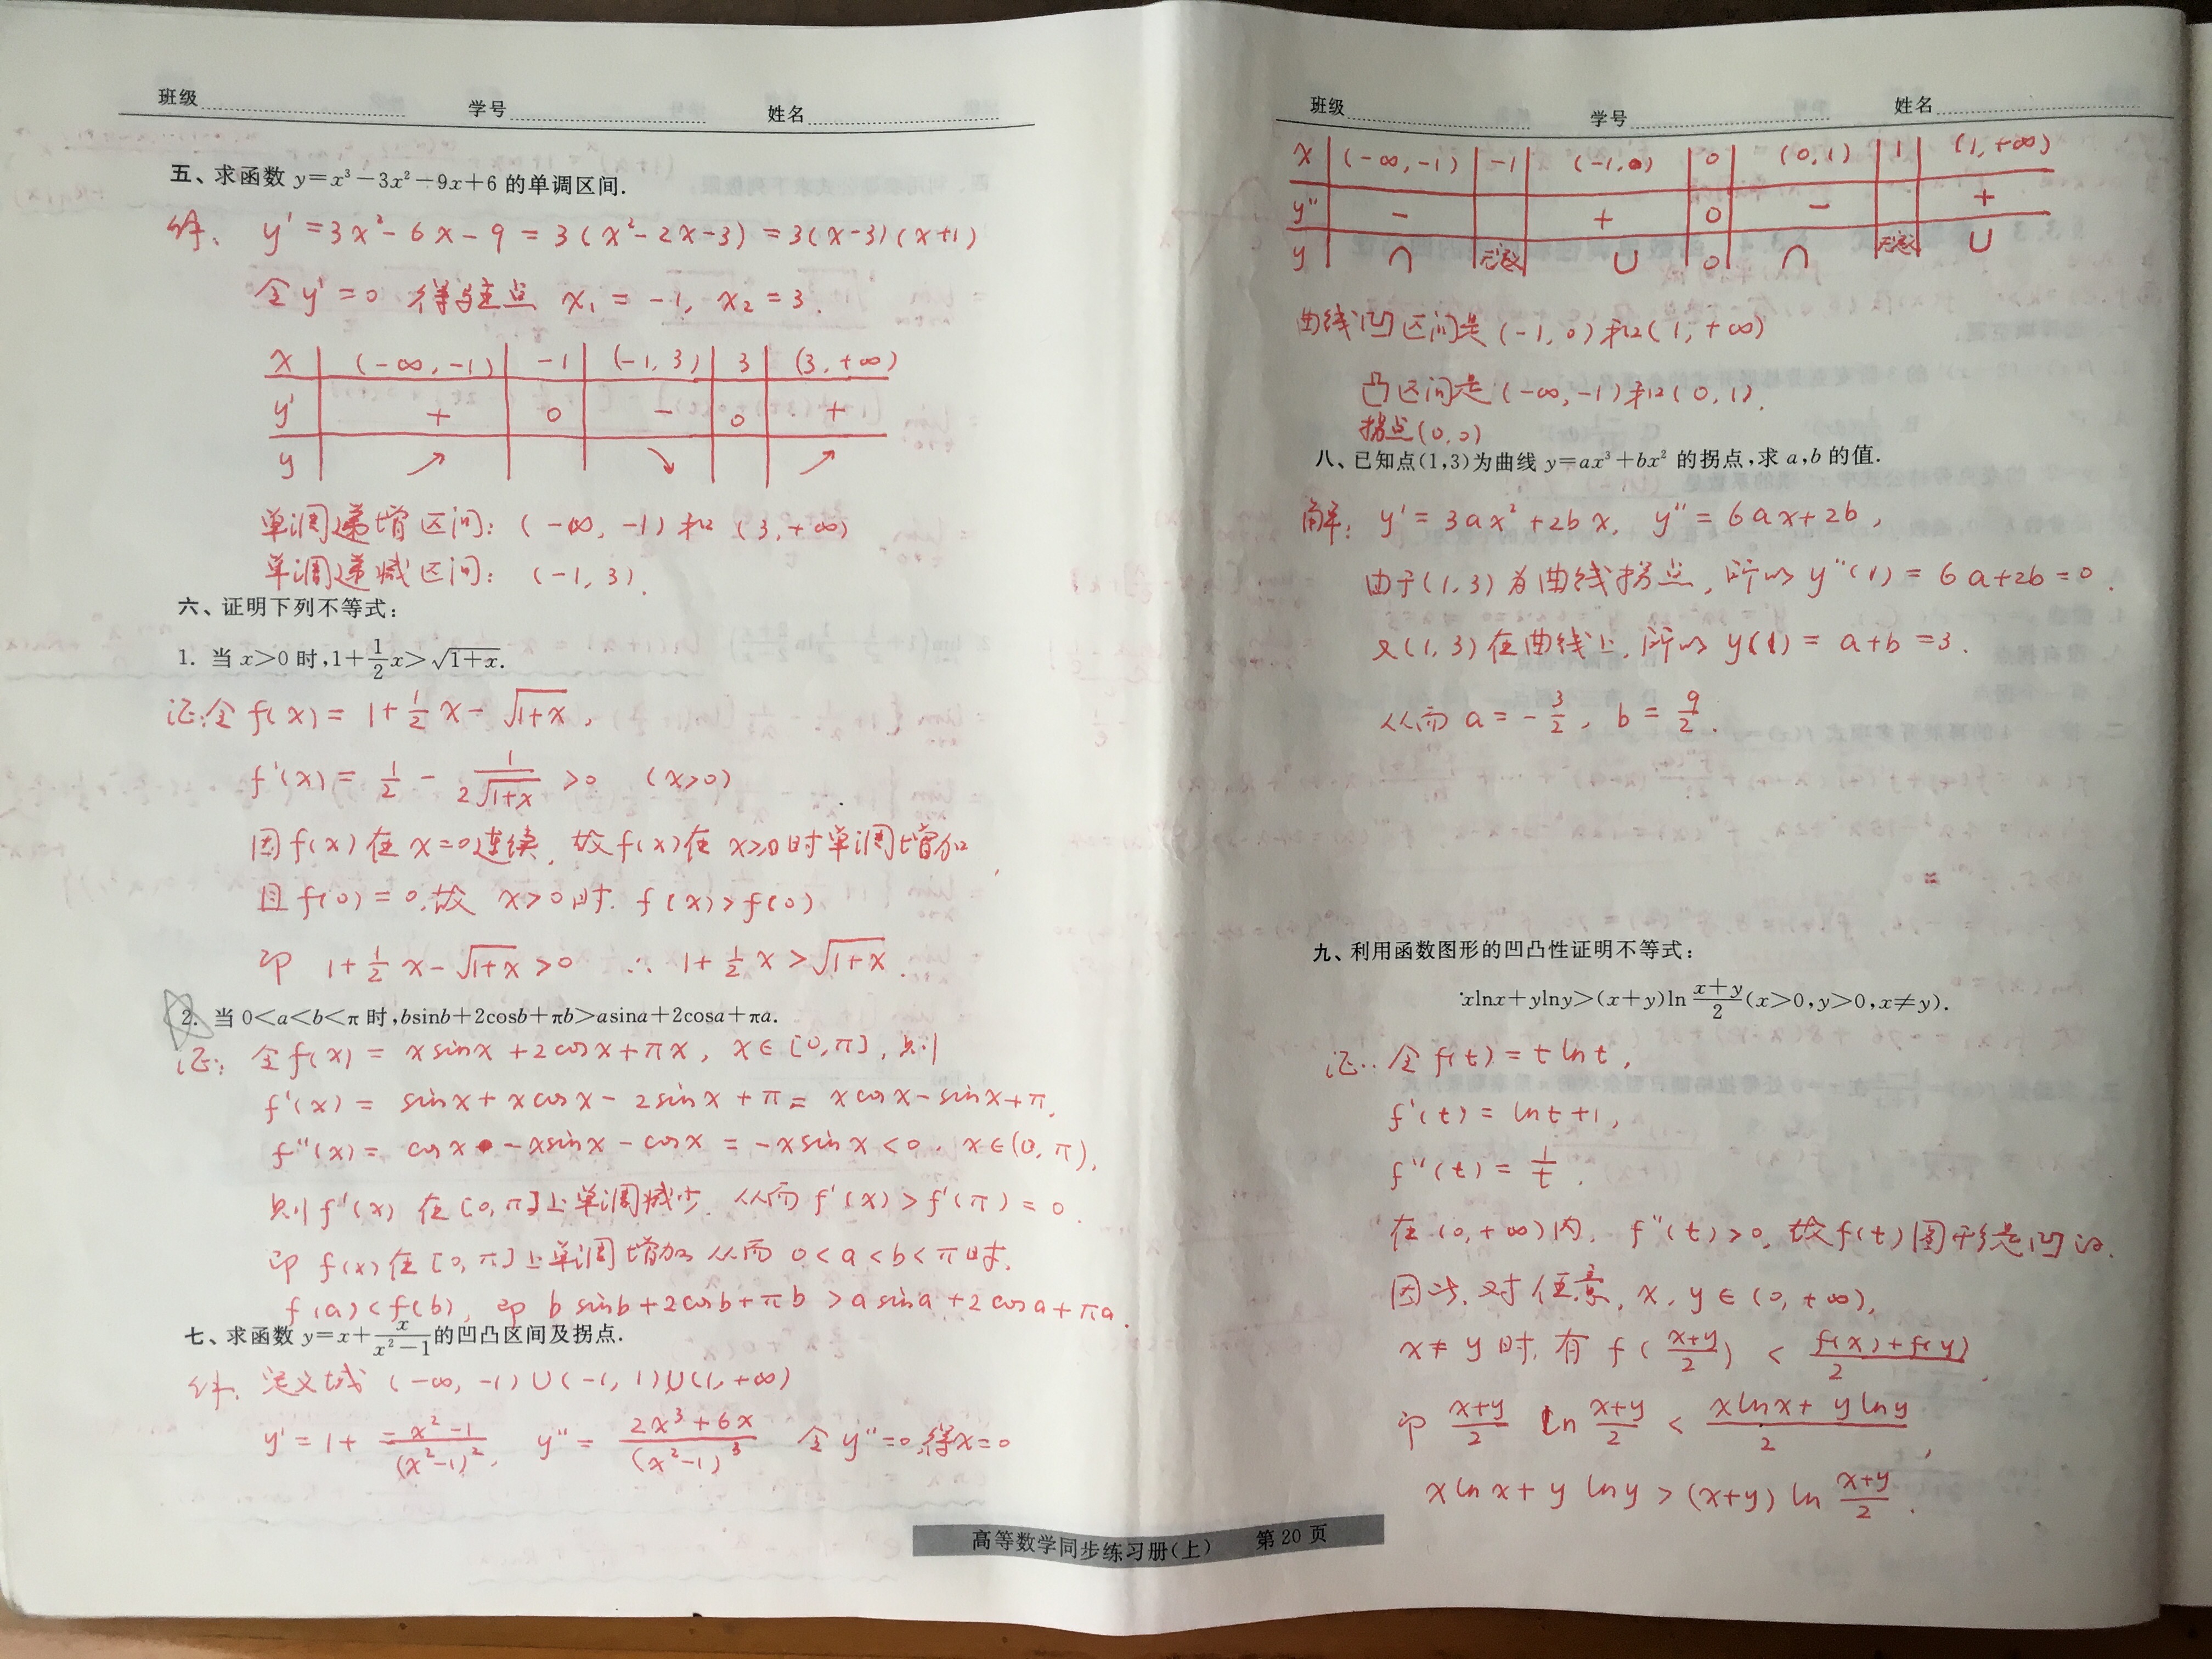 班级 学号 姓名
五、求函数 y=x³-3x²-9x+6 的单调区间.
解: y'=3x²-6x-9=3(x²-2x-3)=3(x-3)(x+1)
令y'=0 得驻点 x₁=-1, x₂=3.
x (-∞,-1) -1 (-1,3) 3 (3,+∞)
y' + 0 - 0 +
y ↗ ↘ ↗
单调递增区间: (-∞,-1)和(3,+∞)
单调递减区间: (-1,3).
六、证明下列不等式:
1. 当 x>0 时,1+\frac{1}{2}x>√(1+x).
证:令f(x)=1+\frac{1}{2}x-√(1+x),
f'(x)=\frac{1}{2}-\frac{1}{2√(1+x)}>0 (x>0)
因f(x)在x=0连续,故f(x)在x≥0时单调增加,
且f(0)=0,故 x>0时. f(x)>f(0)
即 1+\frac{1}{2}x-√(1+x)>0 ∴ 1+\frac{1}{2}x>√(1+x).
2. 当 0<a<b<π 时,bsinb+2cosb+πb>asina+2cosa+πa.
证: 令f(x)=xsinx+2cosx+πx, x∈[0,π],则
f'(x)=sinx+xcosx-2sinx+π=xcosx-sinx+π.
f''(x)=cosx-xsinx-cosx=-xsinx<0, x∈(0,π),
则f'(x)在[0,π]上单调减少. 从而f'(x)>f'(π)=0.
即f(x)在[0,π]上单调增加 从而 0<a<b<π时,
f(a)<f(b), 即 bsinb+2cosb+πb>asina+2cosa+πa.
七、求函数 y=x+\frac{x}{x²-1}的凹凸区间及拐点.
解. 定义域 (-∞,-1)∪(-1,1)∪(1,+∞)
y'=1+\frac{-x²-1}{(x²-1)²}, y''=\frac{2x³+6x}{(x²-1)³} 令y''=0,得x=0
班级 学号 姓名
x (-∞,-1) -1 (-1,0) 0 (0,1) 1 (1,+∞)
y'' - + 0 - +
y ∩ 无定义 ∪ 0 ∩ 无定义 ∪
曲线凹区间是(-1,0)和(1,+∞)
凸区间是(-∞,-1)和(0,1).
拐点(0,0)
八、已知点(1,3)为曲线 y=ax³+bx² 的拐点,求 a,b 的值.
解: y'=3ax²+2bx, y''=6ax+2b,
由于(1,3)为曲线拐点,所以 y''(1)=6a+2b=0.
又(1,3)在曲线上,所以 y(1)=a+b=3.
从而 a=-\frac{3}{2}, b=\frac{9}{2}.
九、利用函数图形的凹凸性证明不等式:
xlnx+ylny>(x+y)ln\frac{x+y}{2}(x>0,y>0,x≠y).
证: 令f(t)=tlnt,
f'(t)=lnt+1,
f''(t)=\frac{1}{t}.
在(0,+∞)内, f''(t)>0, 故f(t)图形是凹的.
因此,对任意,x,y∈(0,+∞),
x≠y时,有f(\frac{x+y}{2})<\frac{f(x)+f(y)}{2},
即 \frac{x+y}{2} ln\frac{x+y}{2}<\frac{xlnx+ylny}{2},
xlnx+ylny>(x+y)ln\frac{x+y}{2}.
高等数学同步练习册(上) 第 20 页